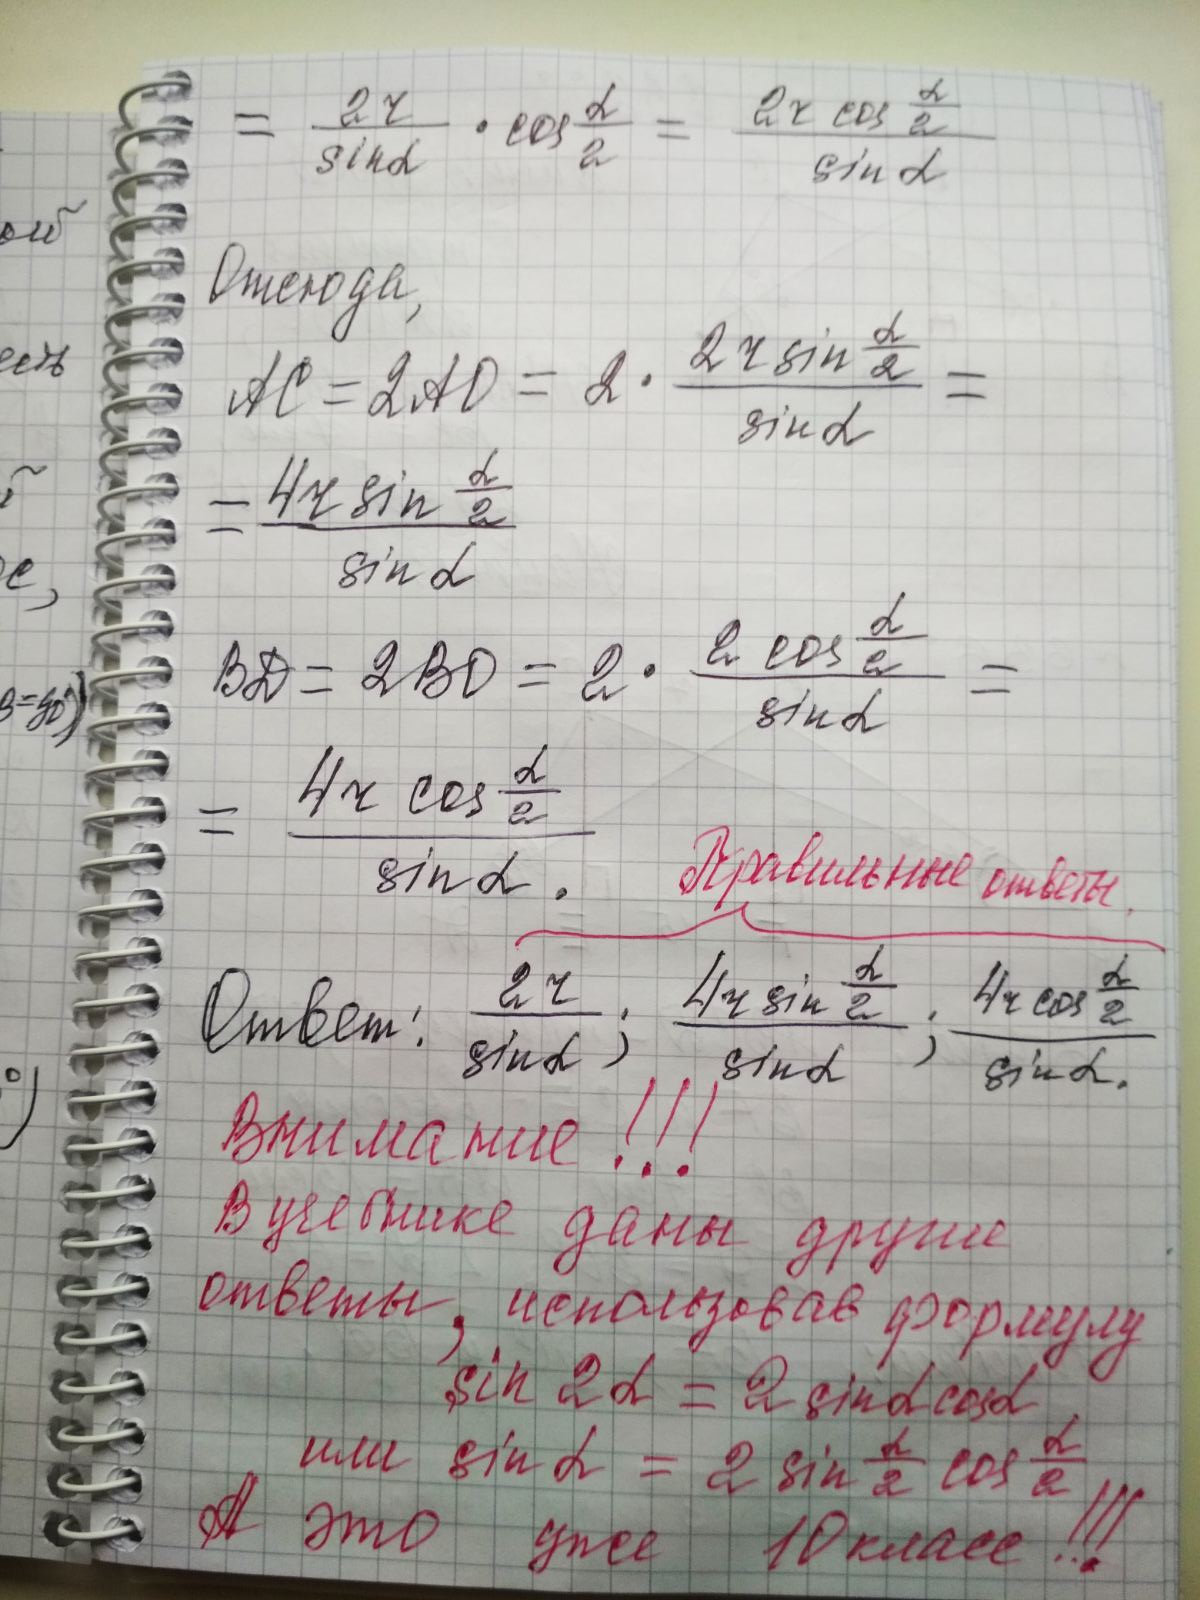 = 2r/sinα · cos α/2 = 2r cos α/2 / sinα
Отсюда,
AC = 2AO = 2 · 2r sin α/2 / sinα =
= 4r sin α/2 / sin α
BD = 2BO = 2 · 2 cos α/2 / sinα =
= 4r cos α/2 / sinα .
Правильные ответы.
Ответ: 2r/sinα ; 4r sin α/2 / sinα ; 4r cos α/2 / sinα.
Внимание!!!
В учебнике даны другие
ответы, использовав формулу
sin 2α = 2 sinα cosα
или sin α = 2 sin α/2 cos α/2
А это уже 10 класс!!!
ой
есть
й
ос,
B=90°)
°)